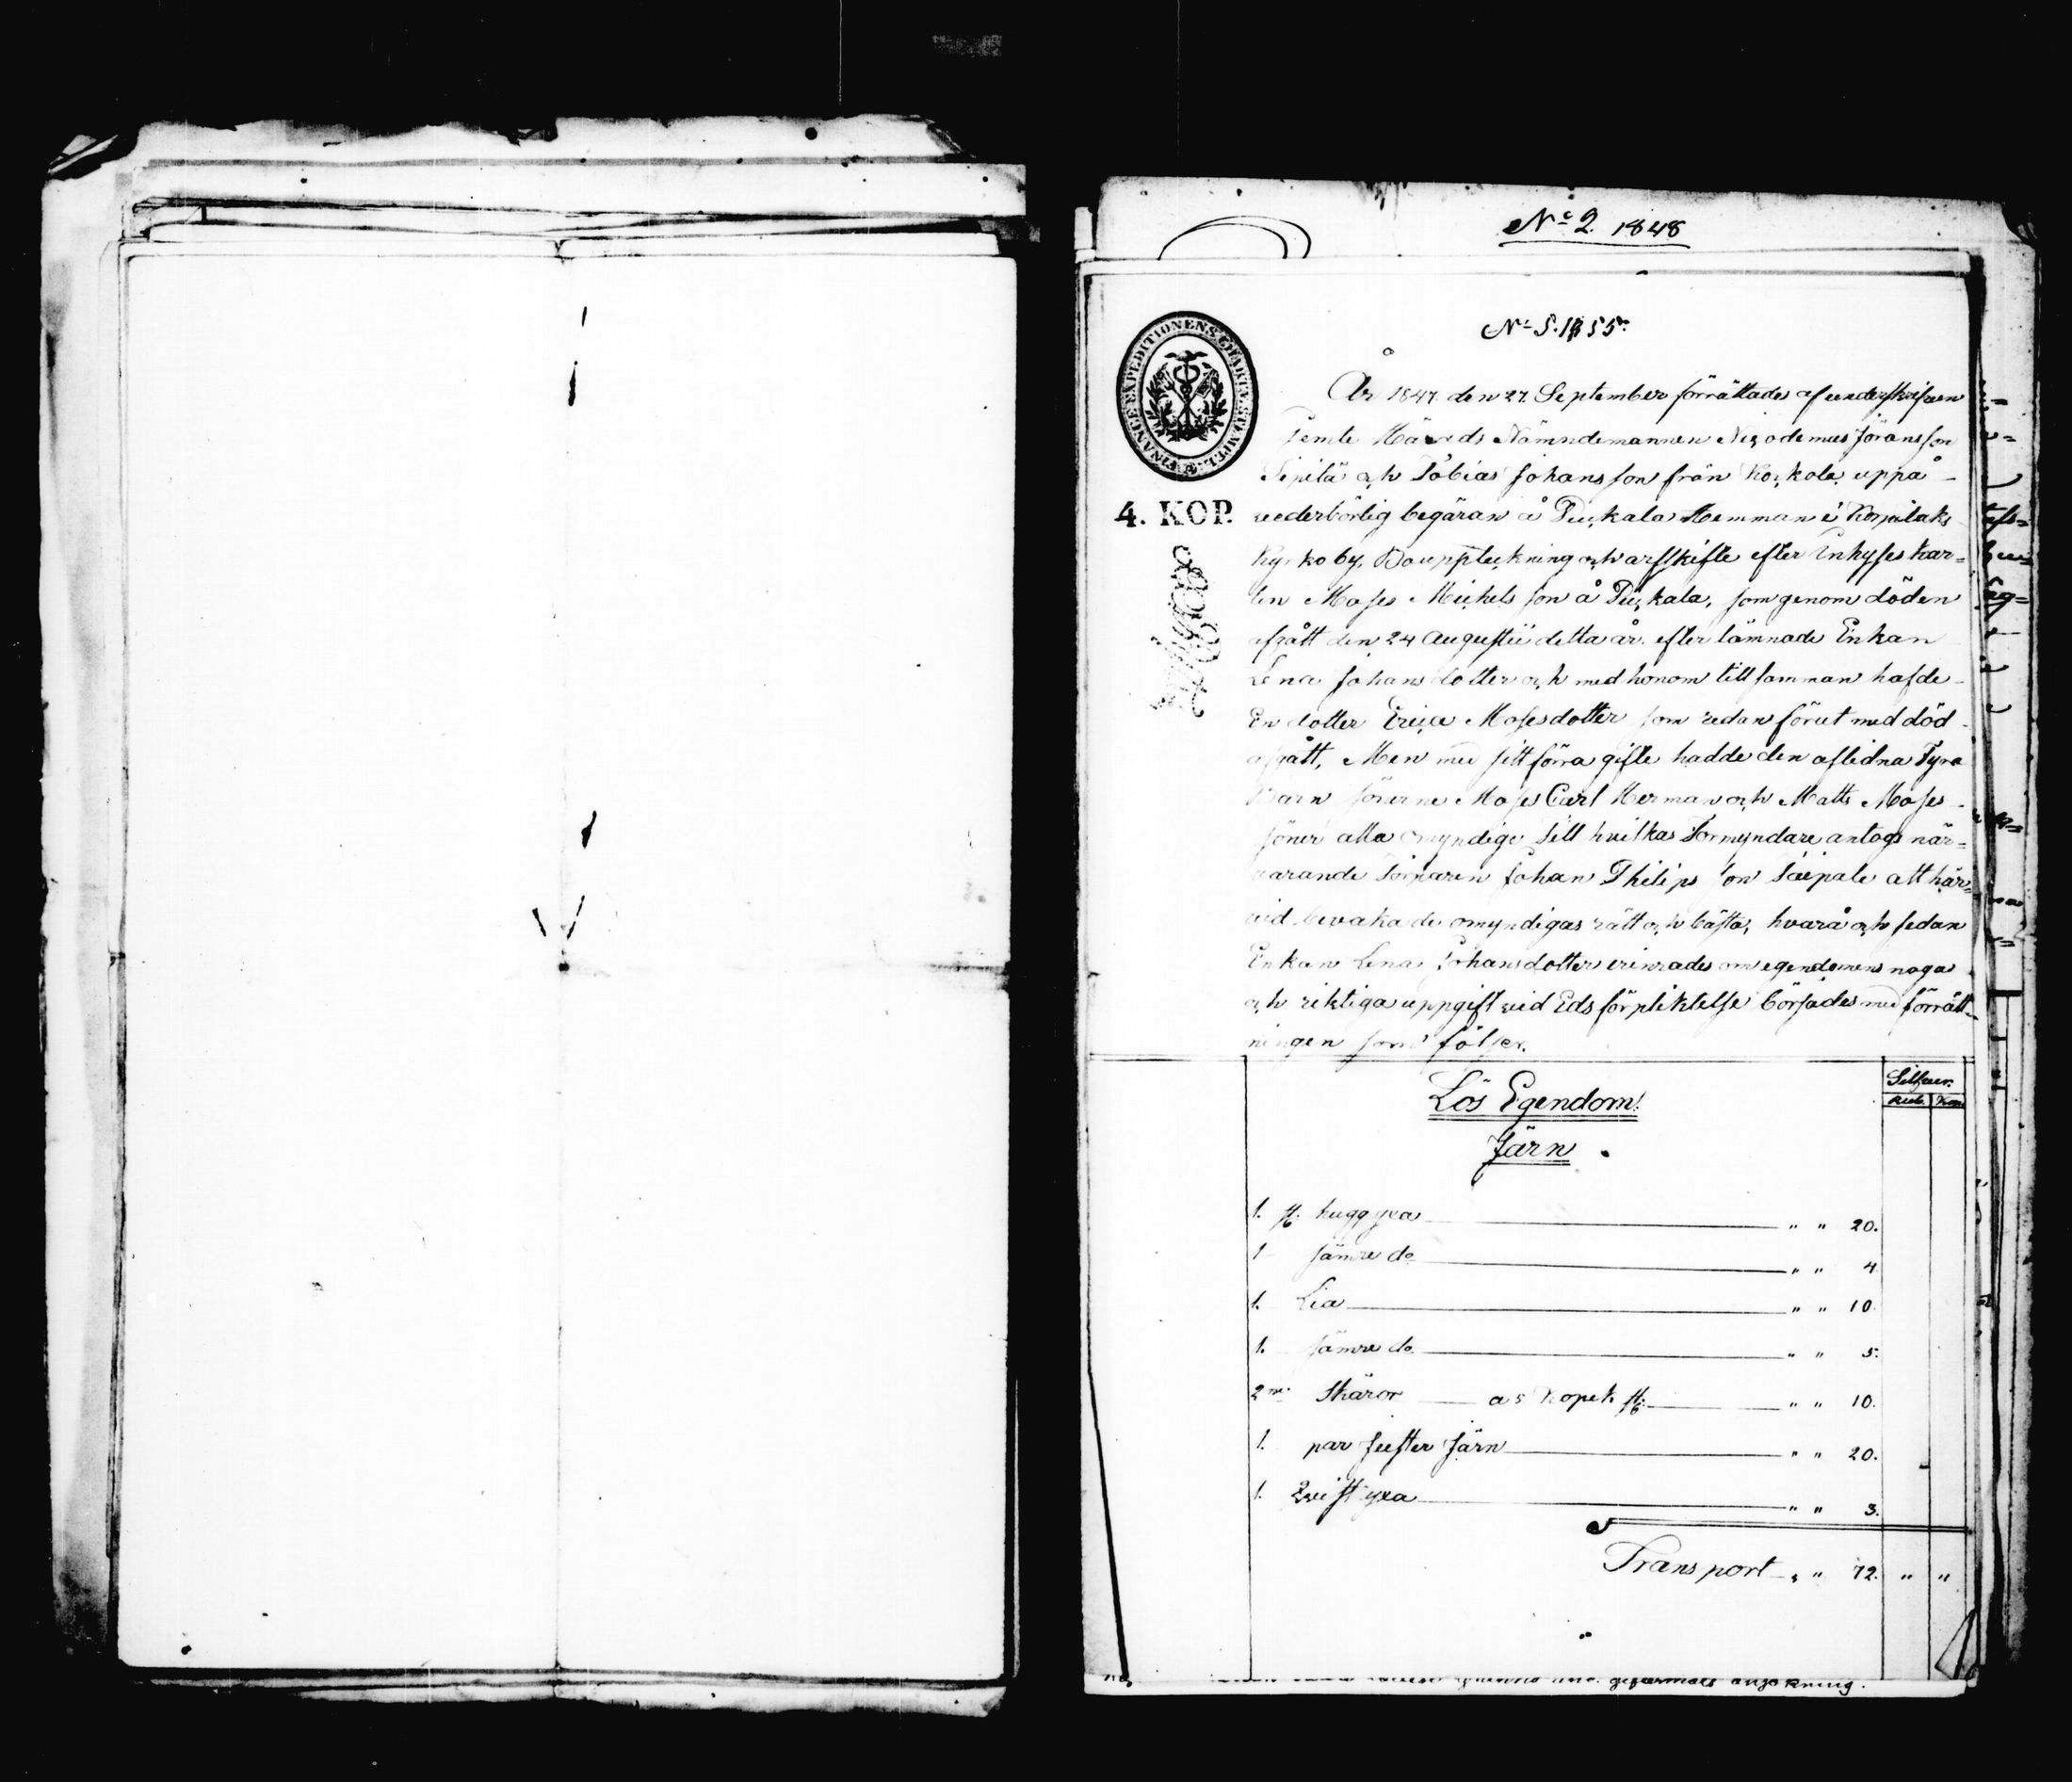 No 2. 1848
No 5. 1855.
FINANCE EXPEDITIONENS CHARTÆ STEMPEL
4. KOP.
År 1847 den 27 September förrättades af underskrifven
Jemte Härads Nämndemannen Nicodemus Jöransson
Sipilä och Tobias Johansson från Korkola uppå
vederbörlig begäran å Puckala Hemman i Korpilaks
Kyrko by, Bouppteckning och arfskifte efter Inhyses Kar-
len Moses Michels son å Puckala, som genom döden
afgått den 24 Augustii detta år. efter lämnade Enkan
Lena Johansdotter och med honom tillsamman hafde
En dotter Erica Mosesdotter som redan förut med död
afgått, Men med sitt förra gifte hadde den aflidna Fyra
Barn sönerne Moses Carl Herman och Matts Moses
söner alla omyndige till hvilkas Förmyndare antogs när-
varande Torparen Johan Philips son Saipale att här-
vid bevaka de omyndigas rätt och bästa, hvarå och sedan
Enkan Lena Johansdotter erinrades om egendomens noga
och riktiga uppgift vid Eds förpliktelse börjades med förrätt-
ningen som följer.
Silfver.
Rub. Kop.
Lös Egendom.
Järn
1. st. hugg yxa " " 20.
1 sämre do " " 4
1. Lia " " 10.
1. sämre do " " 5.
2ne Skäror a 5 Kopek st. " " 10.
1. par Juster Järn " " 20.
1. Qvist yxa " " 3.
Transport " " 72. " "
ansökning.